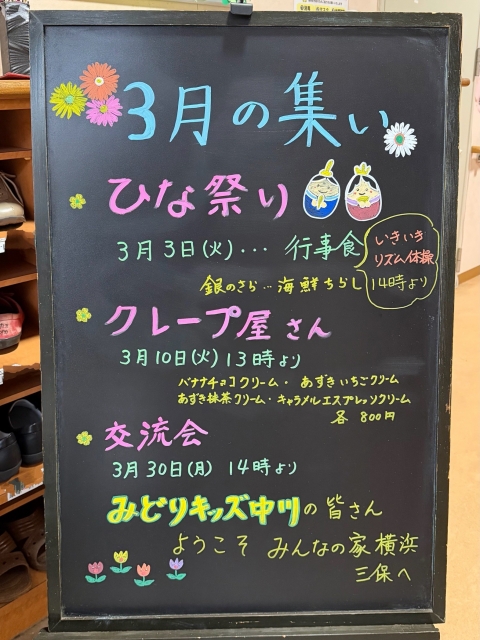 3月の集い
ひな祭り
3月3日(火)・・・行事食
いきいき
リズム体操
14時より
銀のさら…海鮮ちらし
クレープ屋さん
3月10日(火)13時より
バナナチョコクリーム・あずきいちごクリーム
あずき抹茶クリーム・キャラメルエスプレッソクリーム
各800円
交流会
3月30日(月)14時より
みどりキッズ中川の皆さん
ようこそ みんなの家横浜
三保へ